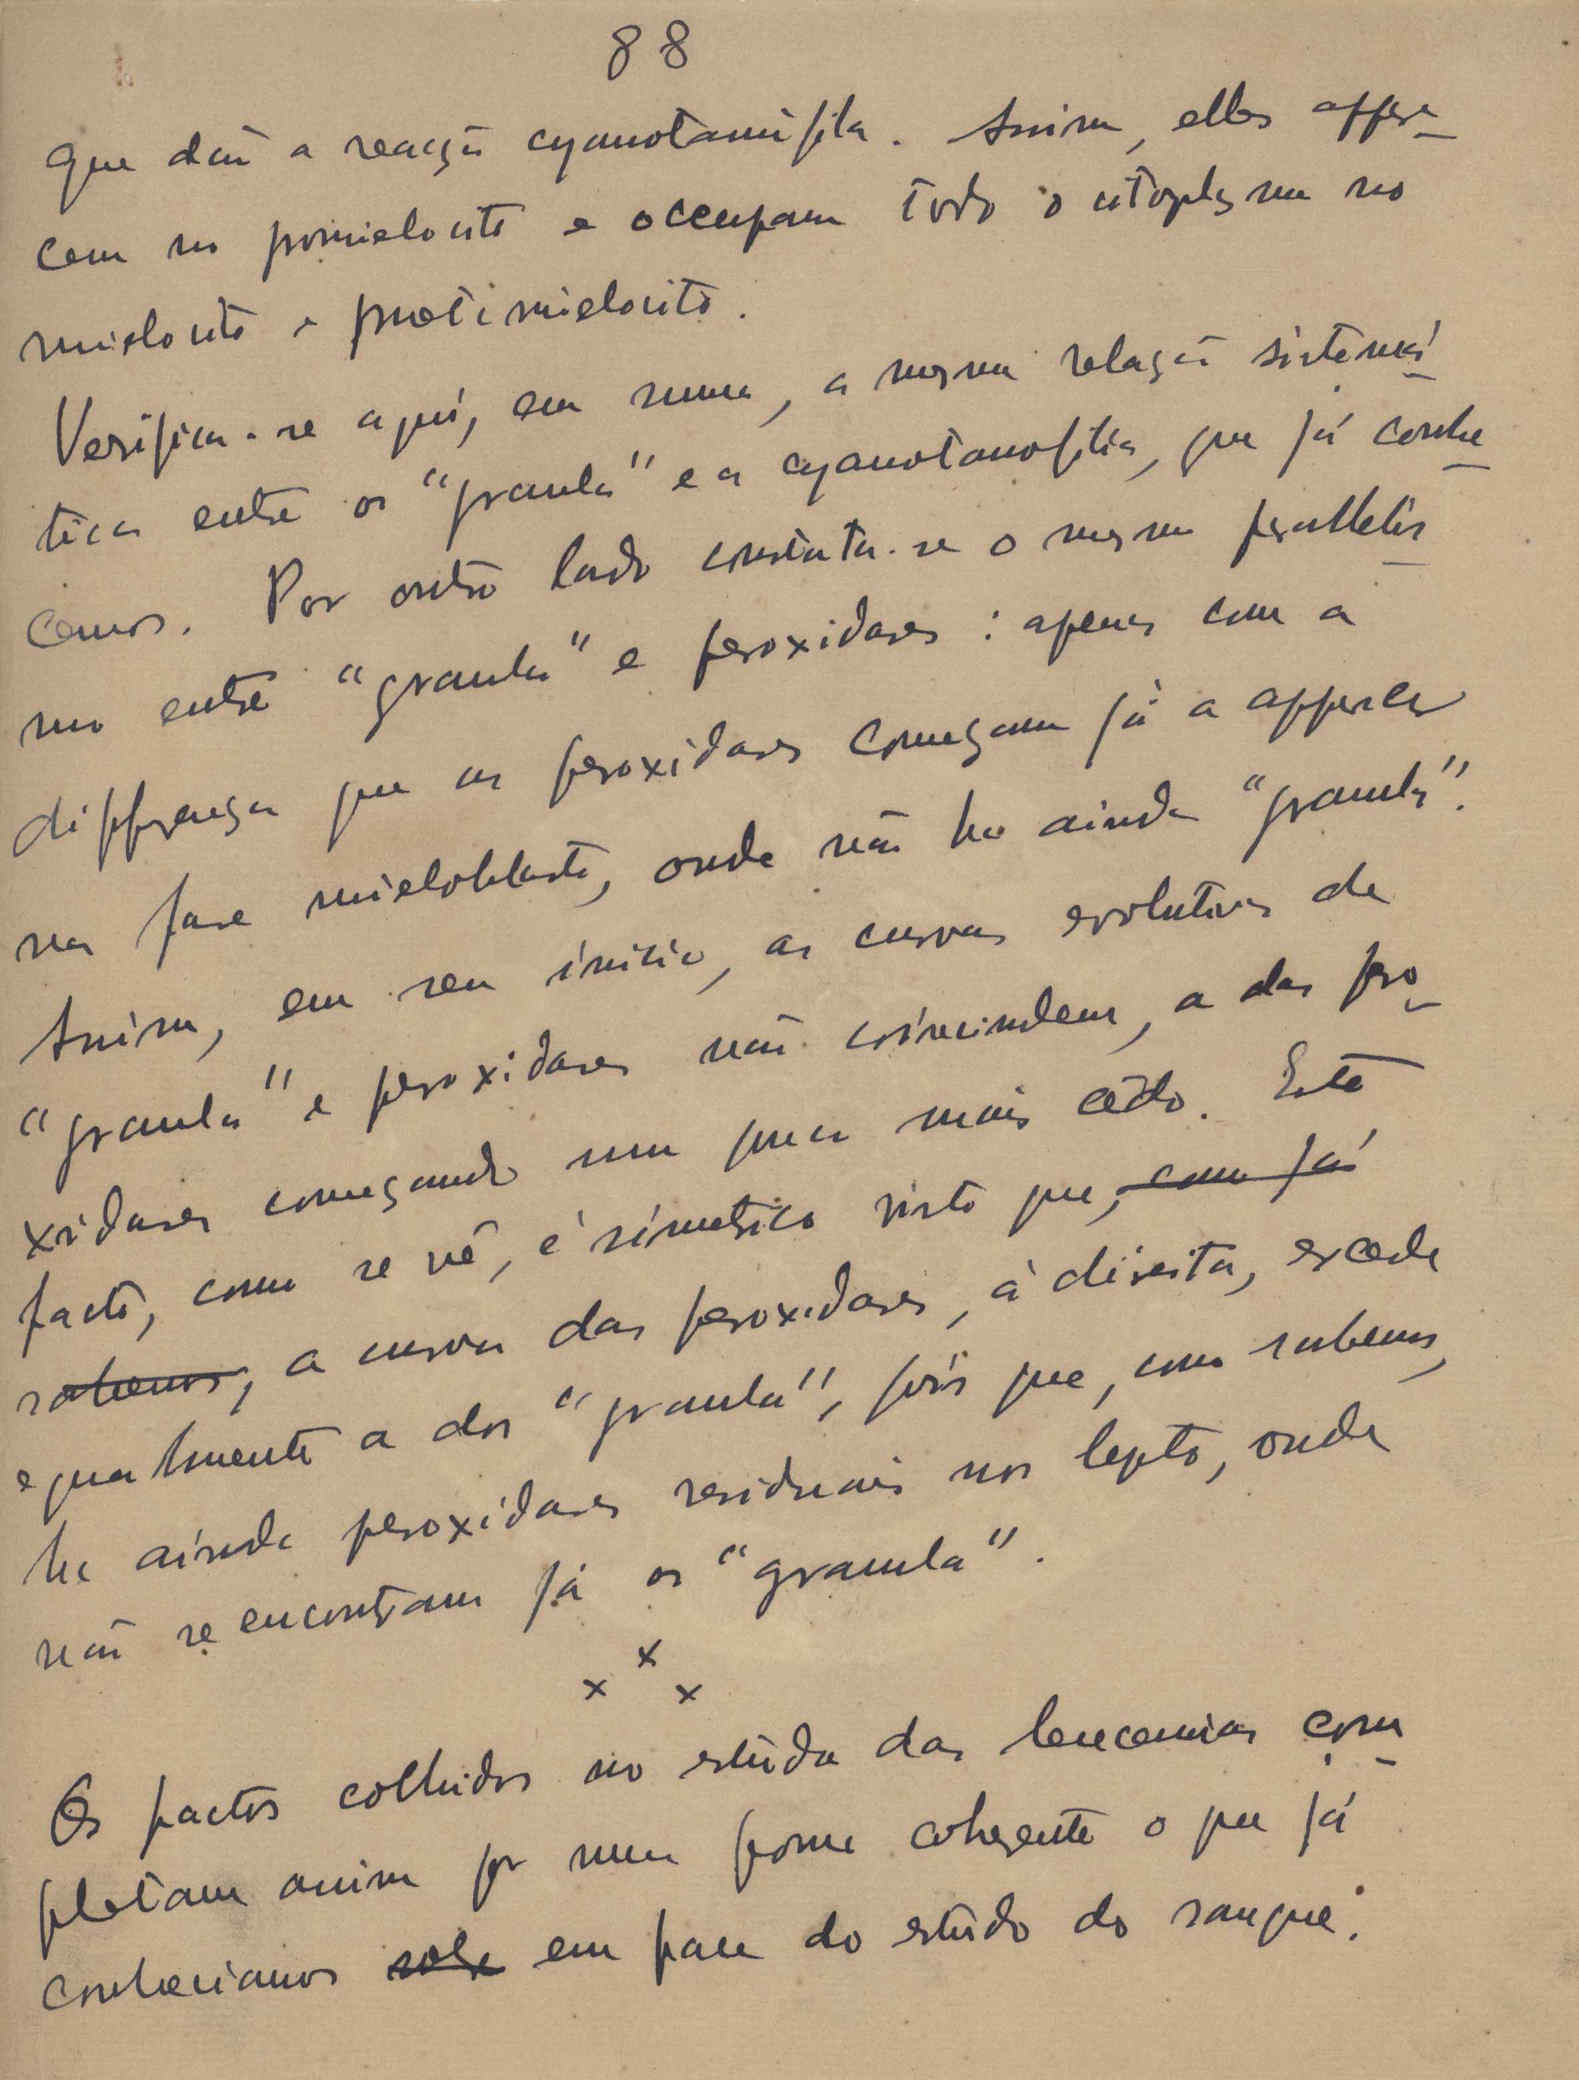 88
que dão a reacção cyanotanófila. Assim, elles appare-
cem no promielocito e occupam todo o citoplasma no
mielocito e metamielocito.
Verifica-se aqui, em suma, a mesma relação sistemá-
tica entre os "granula" e a cyanotanofilia, que já conhe-
cemos. Por outro lado constata-se o mesmo parallelis-
mo entre "granula" e peroxidases: apenas com a
differença que as peroxidases começam já a apparecer
na fase mieloblasto, onde não ha ainda "granula".
Assim, em seu inicio, as curvas evolutivas de
"granula" e peroxidases não coincindem, a das pero-
xidases começando um pouco mais cêdo. Este
facto, como se vê, é simetrico visto que, como já
sabemos, a curva das peroxidases, á direita, excede
egualmente a dos "granula", pois que, como sabemos,
ha ainda peroxidases residuais nos lepto, onde
não se encontram já os "granula".
x x x
Os factos colhidos no estúdo das leucemias com-
pletam assim por uma forma coherente o que já
conheciamos em face do estúdo do sangue.